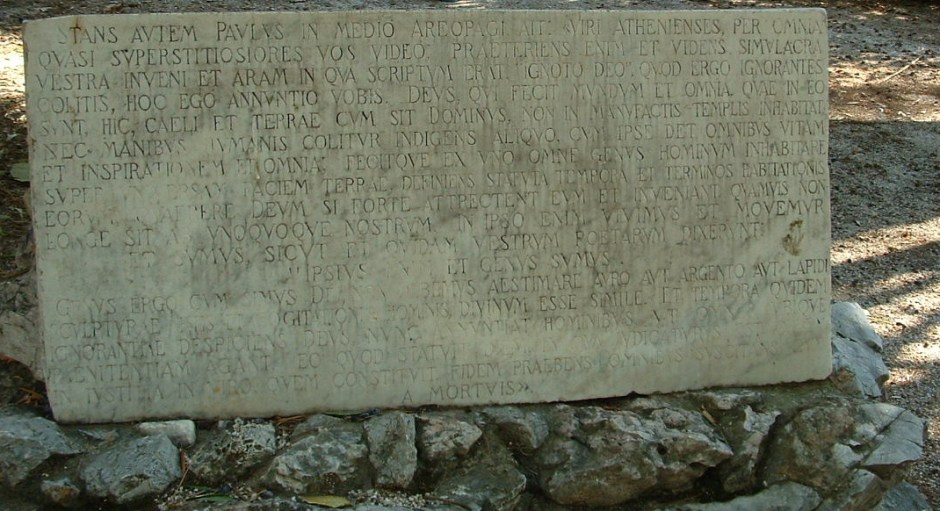 STANS AVTEM PAVLVS IN MEDIO AREOPAGI AIT: «VIRI ATHENIENSES, PER OMNIA
QVASI SVPERSTITIOSIORES VOS VIDEO. PRAETERIENS ENIM ET VIDENS SIMVLACRA
VESTRA INVENI ET ARAM IN QVA SCRIPTVM ERAT: IGNOTO DEO. QVOD ERGO IGNORANTES
COLITIS, HOC EGO ANNVNTIO VOBIS. DEVS, QVI FECIT MVNDVM ET OMNIA QVAE IN EO
SVNT, HIC, CAELI ET TERRAE CVM SIT DOMINVS, NON IN MANVFACTIS TEMPLIS INHABITAT
NEC MANIBVS HVMANIS COLITVR INDIGENS ALIQVO, CVM IPSE DET OMNIBVS VITAM
ET INSPIRATIONEM ET OMNIA; FECITQVE EX VNO OMNE GENVS HOMINVM INHABITARE
FACIEM TERRAE, DEFINIENS STATVTA TEMPORA ET TERMINOS HABITATIONIS
DEVM SI FORTE ATTRECTENT EVM ET INVENIANT, QVAMVIS NON
LONGE SIT VNOQVOQVE NOSTRVM. IN IPSO ENIM VIVIMVS ET MOVEMVR
ET SVMVS, SICVT ET QVIDAM VESTRVM POETARVM DIXERVNT:
IPSIVS ET GENVS SVMVS.
GENVS ERGO CVM AESTIMARE AVRO AVT ARGENTO AVT LAPIDI
SCVLPTVRAE HOMINIS DIVINVM ESSE SIMILE. ET TEMPORA QVIDEM
IGNORANTIAE DESPICIENS DEVS HOMINIBVS
EO QVOD STATVIT
IN IVSTITIA IN VIRO QVEM CONSTITVIT FIDEM PRAEBENS
A MORTVIS»